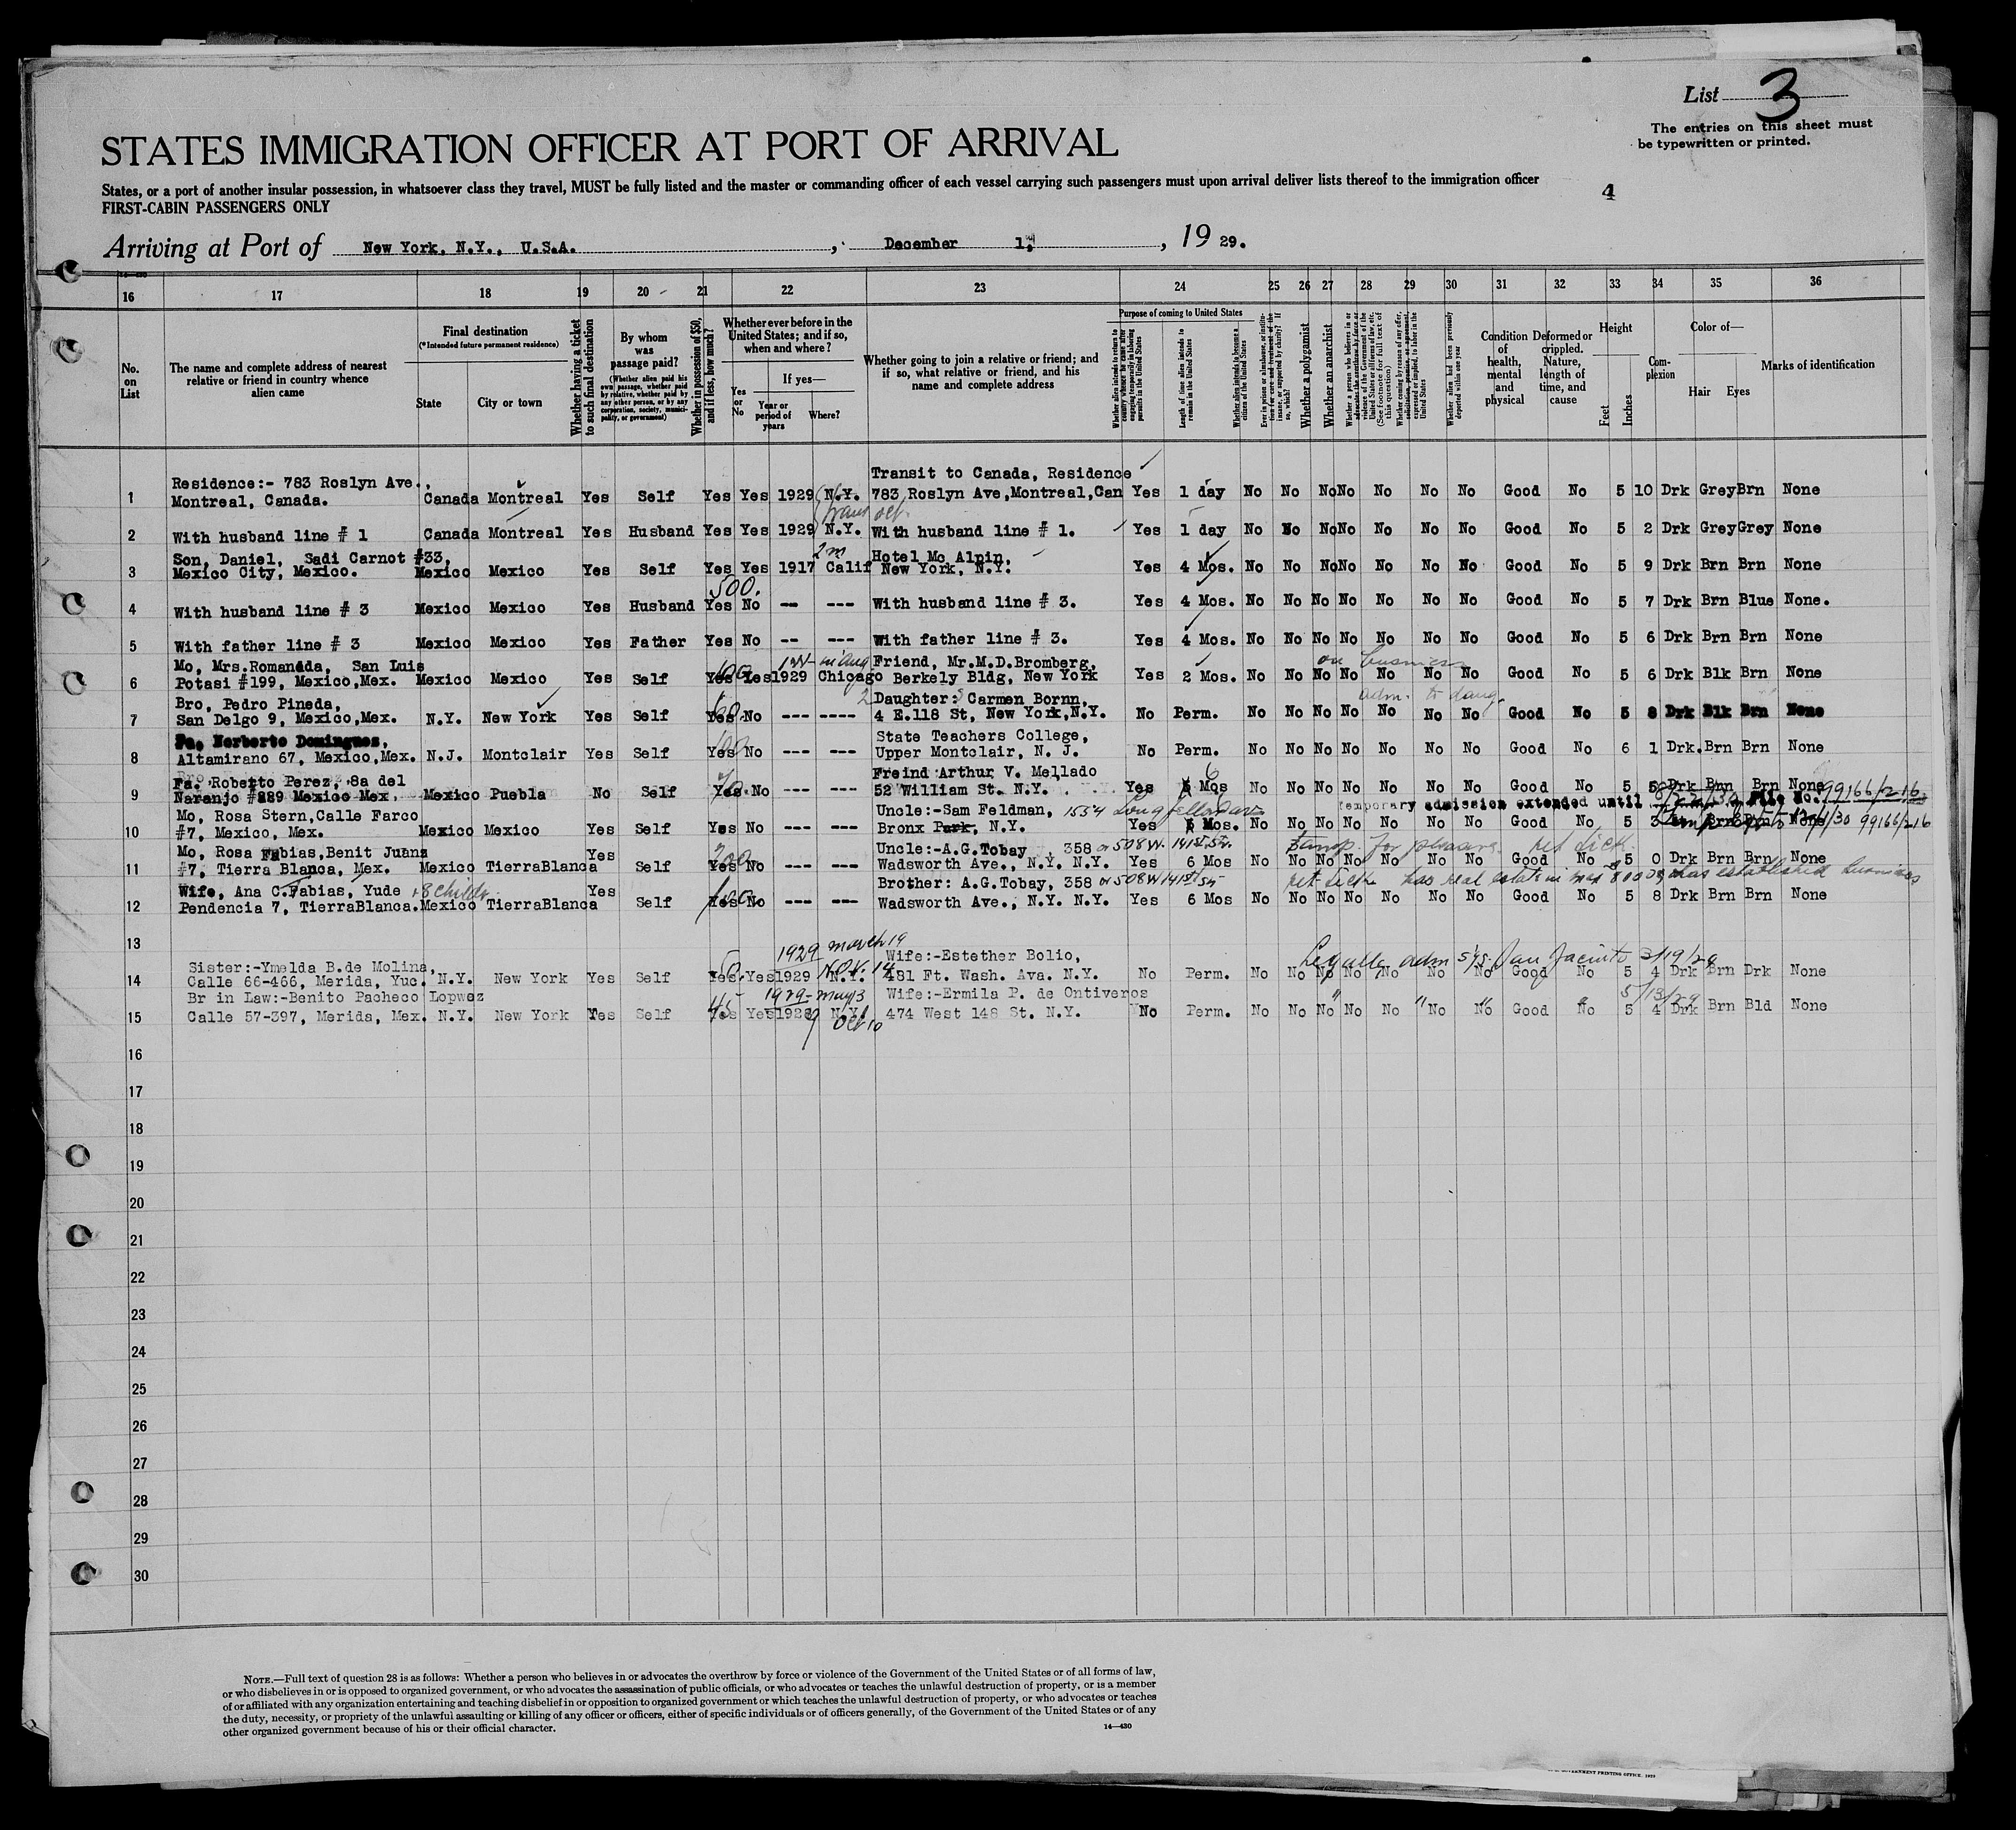 List 3
The entries on this sheet must
be typewritten or printed.
STATES IMMIGRATION OFFICER AT PORT OF ARRIVAL
States, or a port of another insular possession, in whatsoever class they travel, MUST be fully listed and the master or commanding officer of each vessel carrying such passengers must upon arrival deliver lists thereof to the immigration officer
FIRST-CABIN PASSENGERS ONLY
4
Arriving at Port of New York, N.Y., U.S.A. , December 1, , 19 29.
16 17 18 19 20 21 22 23 24 25 26 27 28 29 30 31 32 33 34 35 36
No. on List
The name and complete address of nearest relative or friend in country whence alien came
Final destination
(*Intended future permanent residence)
State
City or town
Whether having a ticket to such final destination
By whom was passage paid?
(Whether alien paid his own passage, whether paid by relative, whether paid by any other person, or by any corporation, society, municipality, or government)
Whether in possession of $50, and if less, how much?
Whether ever before in the United States; and if so, when and where?
Yes or No
If yes—
Year or period of years
Where?
Whether going to join a relative or friend; and if so, what relative or friend, and his name and complete address
Purpose of coming to United States
Length of time alien intends to remain in the United States
Whether alien intends to become a citizen of the United States
Whether a polygamist
Whether an anarchist
Whether alien had been previously deported within one year
Condition of health, mental and physical
Deformed or crippled. Nature, length of time, and cause
Height
Feet
Inches
Complexion
Color of—
Hair Eyes
Marks of identification
Residence:- 783 Roslyn Ave., Transit to Canada, Residence
1 Montreal, Canada. Canada Montreal Yes Self Yes Yes 1929 N.Y. 783 Roslyn Ave,Montreal,Can Yes 1 day No No No No No No No Good No 5 10 Drk Grey Brn None
2 With husband line # 1 Canada Montreal Yes Husband Yes Yes 1929 N.Y. With husband line # 1. Yes 1 day No No No No No No No Good No 5 2 Drk Grey Grey None
Son, Daniel, Sadi Carnot #33, 2m Hotel Mc Alpin,
3 Mexico City, Mexico. Mexico Mexico Yes Self Yes Yes 1917 Calif New York, N.Y. Yes 4 Mos. No No No No No No No Good No 5 9 Drk Brn Brn None
500.
4 With husband line # 3 Mexico Mexico Yes Husband Yes No -- --- With husband line # 3. Yes 4 Mos. No No No No No No No Good No 5 7 Drk Brn Blue None.
5 With father line # 3 Mexico Mexico Yes Father Yes No -- --- With father line # 3. Yes 4 Mos. No No No No No No No Good No 5 6 Drk Brn Brn None
Mo, Mrs.Romanada, San Luis Friend, Mr.M.D.Bromberg, on business
6 Potasi #199, Mexico,Mex. Mexico Mexico Yes Self Yes Yes 1929 Chicago Berkely Bldg, New York Yes 2 Mos. No No No No No No No Good No 5 6 Drk Blk Brn None
Bro, Pedro Pineda, Daughter: Carmen Bornn, adm. to daug.
7 San Delgo 9, Mexico,Mex. N.Y. New York Yes Self Yes No --- ---- 4 E.118 St, New York,N.Y. No Perm. No No No No No No No Good No 5 8 Drk Blk Brn None
Fa, Norberto Domingues, State Teachers College,
8 Altamirano 67, Mexico,Mex. N.J. Montclair Yes Self Yes No --- --- Upper Montclair, N. J. No Perm. No No No No No No No Good No 6 1 Drk. Brn Brn None
Fa. Roberto Perez, 8a del Freind Arthur V. Mellado 6
9 Naranjo #289 Mexico Mex. Mexico Puebla No Self Yes No --- --- 52 William St. N.Y. Yes Mos No No No No No No No Good No 5 5 Drk Brn Brn None 99166/216
Temporary admission extended until File No.
Mo, Rosa Stern,Calle Farco Uncle:-Sam Feldman, 1554 Longfellow Ave
10 #7, Mexico, Mex. Mexico Mexico Yes Self Yes No --- --- Bronx Park, N.Y. Yes Mos. No No No No No No No Good No 5 3 Brn Brn None 99166/216
Mo, Rosa Fabias,Benit Juanz Uncle:-A.G.Tobay , 358 or 508 W. 141st St. temp. for pleasure. ret tick.
11 #7, Tierra Blanca, Mex. Mexico TierraBlanca Yes Self 200 Yes No --- --- Wadsworth Ave., N.Y. N.Y. Yes 6 Mos No No No No No No No Good No 5 0 Drk Brn Brn None
Wife, Ana C.Fabias, Yude + 8 childr. Brother: A.G.Tobay, 358 or 508 W 141st St ret tick has real estate in mex has established business
12 Pendencia 7, TierraBlanca. Mexico TierraBlanca Yes Self Yes No --- --- Wadsworth Ave., N.Y. N.Y. Yes 6 Mos No No No No No No No Good No 5 8 Drk Brn Brn None
13
1929 march 19
Sister:-Ymelda B.de Molina, Wife:-Estether Bolio, Legally adm S/S San Jacinto 3/19/29
14 Calle 66-466, Merida, Yuc. N.Y. New York Yes Self Yes Yes 1929 N.Y. Nov. 14 481 Ft. Wash. Ava. N.Y. No Perm. No No No No No No No Good No 5 4 Drk Brn Drk None
Br in Law:-Benito Pacheco Lopwez 1929- May 13 Wife:-Ermila P. de Ontiveros 5/13/29
15 Calle 57-397, Merida, Mex. N.Y. New York Yes Self 45 Yes Yes 1929 N.Y. Oct 10 474 West 148 St. N.Y. No Perm. No No No No No No No Good No 5 4 Drk Brn Bld None
16
17
18
19
20
21
22
23
24
25
26
27
28
29
30
NOTE.—Full text of question 28 is as follows: Whether a person who believes in or advocates the overthrow by force or violence of the Government of the United States or of all forms of law,
or who disbelieves in or is opposed to organized government, or who advocates the assassination of public officials, or who advocates or teaches the unlawful destruction of property, or is a member
of or affiliated with any organization entertaining and teaching disbelief in or opposition to organized government or which teaches the unlawful destruction of property, or who advocates or teaches
the duty, necessity, or propriety of the unlawful assaulting or killing of any officer or officers, either of specific individuals or of officers generally, of the Government of the United States or of any
other organized government because of his or their official character.
14—430
GOVERNMENT PRINTING OFFICE: 1929